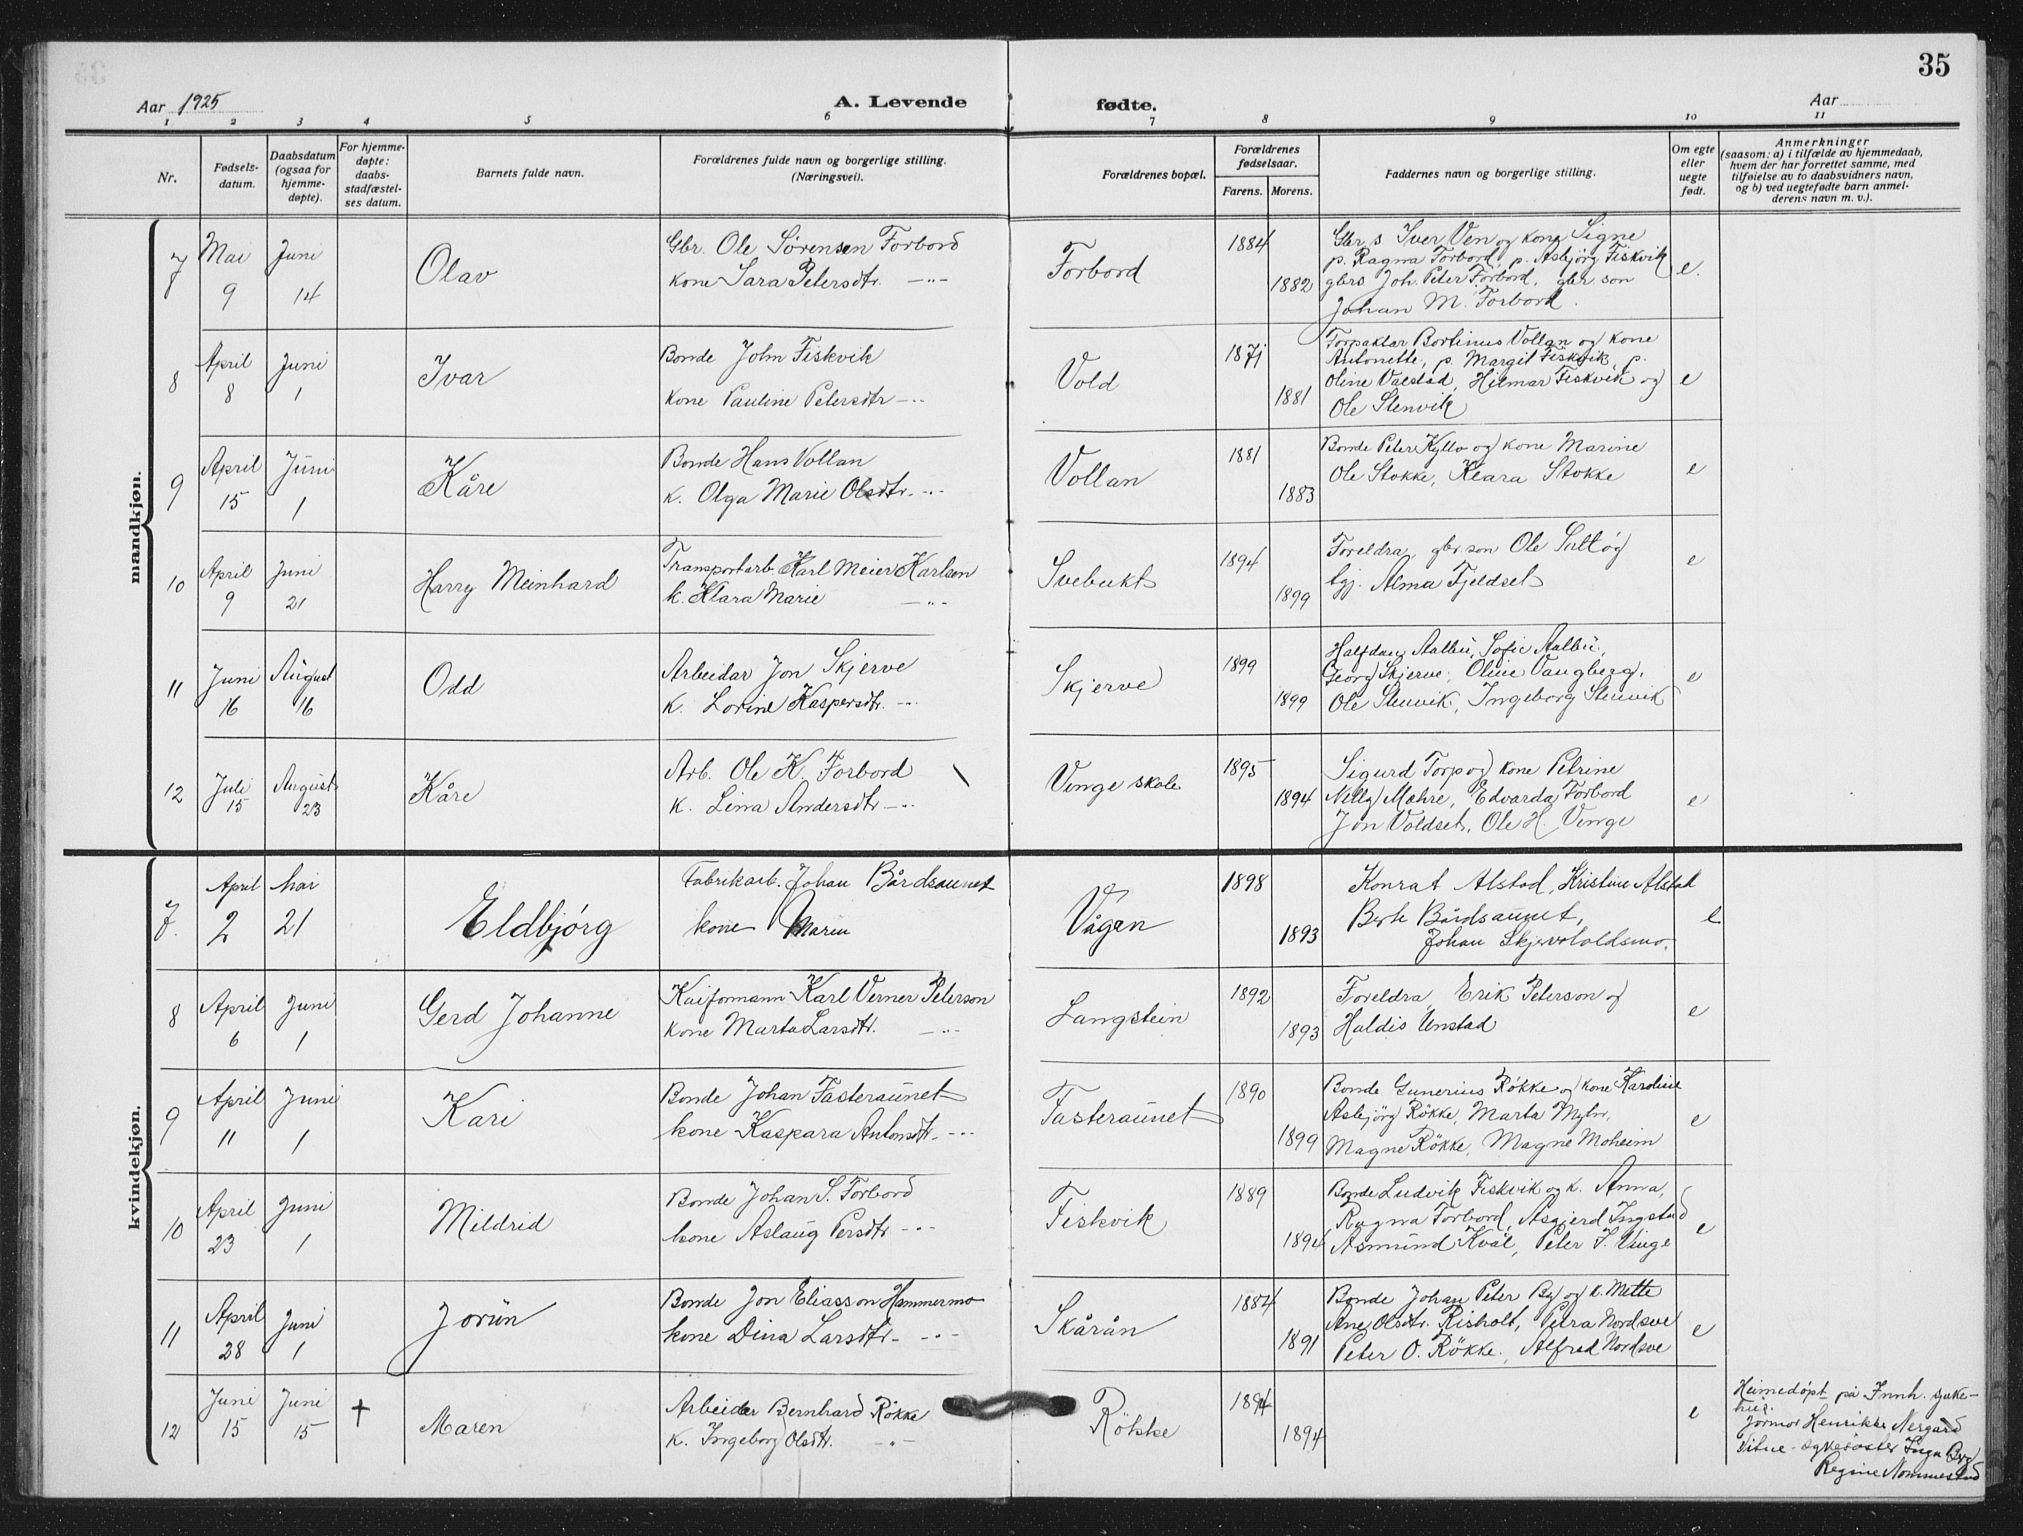 35
Aar 1925
A. Levende fødte.
Aar
1 2 3 4 5 6 7 8 9 10 11
Nr.
Fødsels-
datum.
Daabsdatum
(ogsaa for
hjemme-
døpte).
For hjemme-
døpte:
daabs-
stadfæstel-
ses datum.
Barnets fulde navn.
Forældrenes fulde navn og borgerlige stilling.
(Næringsvei).
Forældrenes bopæl.
Forældrenes
fødselsaar.
Farens. Morens.
Faddernes navn og borgerlige stilling.
Om egte
eller
uegte
født.
Anmerkninger
(saasom: a) i tilfælde av hjemmedaab,
hvem der har forrettet samme, med
tilføielse av to daabsvidners navn,
og b) ved uegtefødte barn anmel-
derens navn m. v.).
mandkjøn.
7 Mai 9 Juni 14 Olav
Gbr. Ole Sørensen Forbord
kone Sara Petersdtr. —"—
Forbord 1884 1882
Gbr s. Iver Ven og kone Signe
p. Ragna Forbord, p. Asbjörg Fiskvik
gbrs Joh. Peter Forbord, gbr. son
Johan M. Forbord.
e.
8 April 8 Juni 1 Ivar
Bonde John Fiskvik
kone Pauline Petersdtr —"—
Vold 1871 1881
Forpaktar Bortinus Vollan og kone
Antonette, p. Margit Fiskvik, p.
Oline Valstad, Hilmar Fiskvik og
Ole Stenvik
e
9 April 15 Juni 1 Kåre
Bonde Hans Vollan
k. Olga Marie Olsdtr. —"—
Vollan 1881 1883
Bonde Peter Kyllo og kone Marine
Ole Stokke, Klara Stokke
e
10 April 9 Juni 21 Harry Meinhard
Transportarb. Karl Meier Karlsen
k. Klara Marie —"—
Svebukt 1894 1899
Foreldra, gbr. son Ole
Alma Fjeldset
e
11 Juni 16 August 16 Odd
Arbeidar Jon Skjerve
k. Lorine Kaspersdtr. —"—
Skjerve 1899 1899
Halfdan Aalbu, Sofie Aalbu,
Georg Skjerve, Oline Vaugberg,
Ole Stenvik, Ingeborg Stenvik
e
12 Juli 15 August 23 Kåre
Arb. Ole K. Forbord
k. Lina Andersdtr —"—
Venge skole 1895 1894
Sigurd Torp og kone Petrine
Nelly Mæhre, Edvarda Forbord
Jon Voldset, Ole H. Venge
e
kvindekjøn.
7. April 2 Mai 21 Eldbjörg
Fabrikarb. Johan Bårdsaunet
kone Maren
Vågen 1898 1893
Konrat Alstad, Kristine Alstad
Berte Bårdsaunet,
Johan Skjervoldsmo.
e
8 April 6 Juni 1 Gerd Johanne
Kaiformann Karl Verner Peterson
kone Marta Larsdtr. —"—
Langstein 1892 1893
Foreldra, Erik Peterson og
Haldis Unstad
e
9 April 11 Juni 1 Kari
Bonde Johan Fasteraunet
kone Kaspara Antonsdtr. —"—
Fasteraunet 1890 1899
Bonde Gunerius Røkke og kone Karoline
Asbjörg Røkke, Marta
Magne Røkke, Magne Moheim
e
10 April 23 Juni 1 Mildrid
Bonde Johan S. Forbord
kone Aslaug Persdtr —"—
Fiskvik 1889 1894
Bonde Ludvik Fiskvik og k. Anna,
Ragna Forbord, Asgjerd Ingstad
Asmund Kvål, Peter J. Vinge
e
11 April 28 Juni 1 Jorun
Bonde Jon Eliasson Hammermo
kone Dina Larsdtr. —"—
Skårån 1884 1891
Bonde Johan Peter By og k. Mette
Ane Olsdtr. Risholt, Petra Nordsve
Peter O. Røkke, Alfred Nordsve
e
12 Juni 15 Juni 15 † Maren
Arbeider Bernhard Røkke
k. Ingeborg Olsdtr. —"—
Røkke 1894 1894
e
Heimedöpt på Innh. sjuke-
hus.
Jormor Henrikke Nergård
Vitne - sykesöster Inga Berg
Regine Nommestad